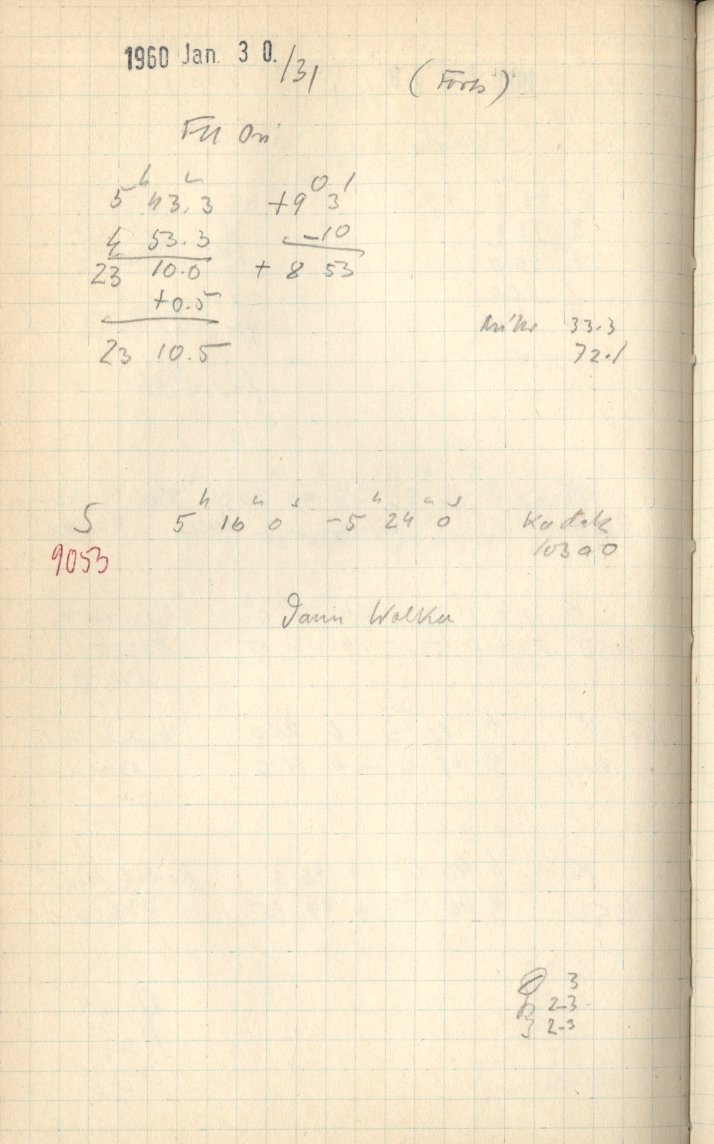 1960 Jan. 30./31 (Forts.)
FU Ori
5ʰ 43.3 +9° 3'
4 53.3 -10
23 10.0 + 8 53
+0.5
23 10.5
33.3
72.1
S 5ʰ 16ᵐ 0ˢ -5ʰ 24ᵐ 0ˢ Kodak
9053 103a0
Dann Wolken
3
2-3
2-3